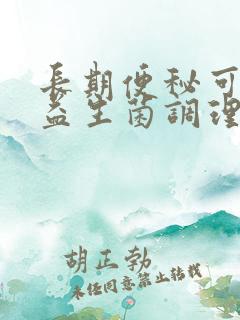 長期便秘可
益生菌調理
胡正勃
未經同意禁止轉載